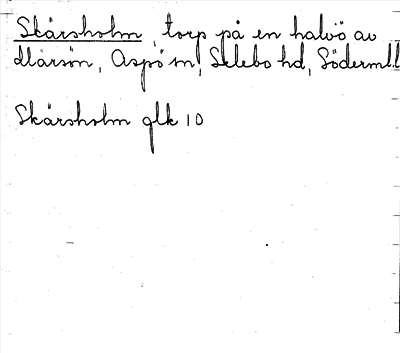 Skårsholm, torp på en halvö av
Mårsön, Aspö sn, Selebo hd, Söderml.
Skårsholm glk 10